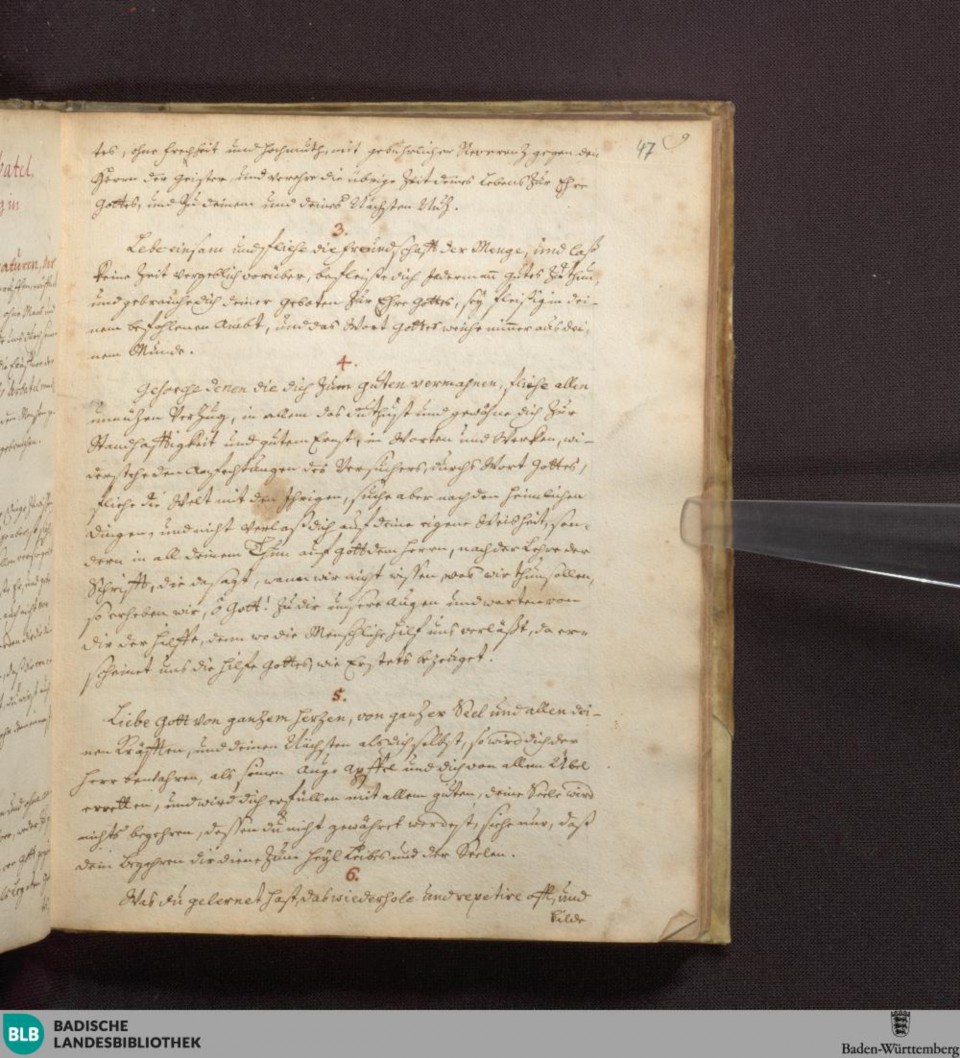 atel.
g in
aturen, der
47 9
tes, ohne frechheit und hochmuth, mit gebührlicher Reverenz gegen den
Herrn der Geister, und verehre die übrige Zeit deines Lebens zur Ehre
Gottes, und zu deinem und deines Nächsten Nutz.
3.
Lebe einsam und fliehe die freündschafft der Menge, und laß
keine Zeit vergeblich vorüber, befleiße dich Jedermann gutes zu thun,
und gebrauche dich deiner gaben zur Ehre Gottes, sey fleißig in dei-
nem befohlenen Ambt, und das Wort Gottes weiche nimmer aus dei-
nem Munde.
4.
Gehorche denen die dich zum guten vermahnen, fliehe allen
unnützen Verzug, in allem das du thust und gewöhne dich zur
Standhafftigkeit und gutem Ernst, in Worten und Wercken, wi-
derstehe den Anfechtungen des Versuchers, durchs Wort Gottes,
fliehe die Welt mit den Ihrigen, suche aber nach den heimlichen
Dingen, und nicht verlaß dich auf deine eigene Weisheit, son-
dern in all deinem Thun auf Gott dem Herrn, nach der Lehre der
Schrifft, die da sagt, wann wir nicht wissen, was wir thun sollen,
so erheben wir, ô Gott! zu dir unsere Augen und warten von
dir der hilffe, denn wo die Menschliche hilf uns verläßt, da er-
scheinet uns die hilfe Gottes, wie Er stets bezeüget.
5.
Liebe Gott von ganzem herzen, von ganzer Seel und allen dei-
nen Kräfften, und deinen Nächsten als dich selbst, so wird dich der
Herr bewahren, als seinen Auge apffel und dich von allem Übel
erretten, und wird dich erfüllen mit allem guten, deine Seele wird
nichts begehren, dessen du nicht gewähret werdest, siehe nur, daß
dein begehren dir diene zum heyl Leibes und der Seelen.
6.
Was du gelernet hast, das wiederhole und repetire offt, und
bilde
BLB BADISCHE
LANDESBIBLIOTHEK
Baden-Württemberg